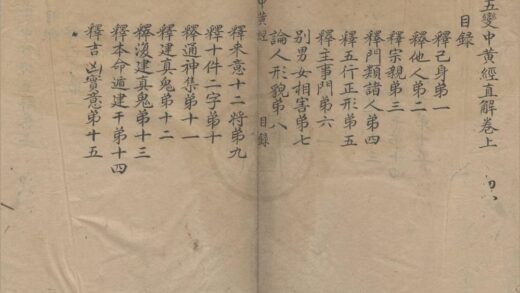 五變中黃經直解卷上
目錄
釋己身第一
釋他人第二
釋宗親第三
釋門類諸人第四
釋五行正形第五
釋主事門第六
別男女相害第七
論人形貌第八
中黃經
目錄
釋來意十二將第九
釋十件二字第十
釋通神集第十一
釋建真鬼第十二
釋復建真鬼第十三
釋本命遁建干第十四
釋吉凶實意第十五